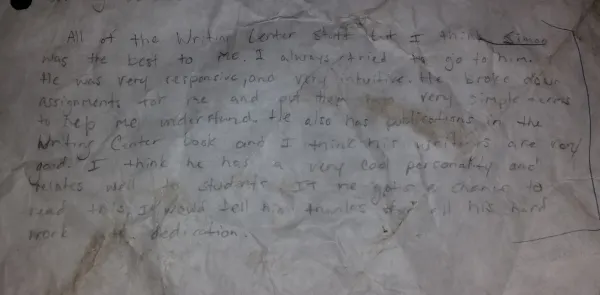 All of the Writing Center staff but I think Simon
was the best to me. I always tried to go to him.
He was very responsive, and very intuitive. He broke down
assignments for me and put them into very simple terms
to help me understand. He also has publications in the
Writing Center book and I think his writings are very
good. I think he has a very cool personality and
relates well to students. If he gets a chance to
read this, I would tell him thanks for all his hard
work dedication.